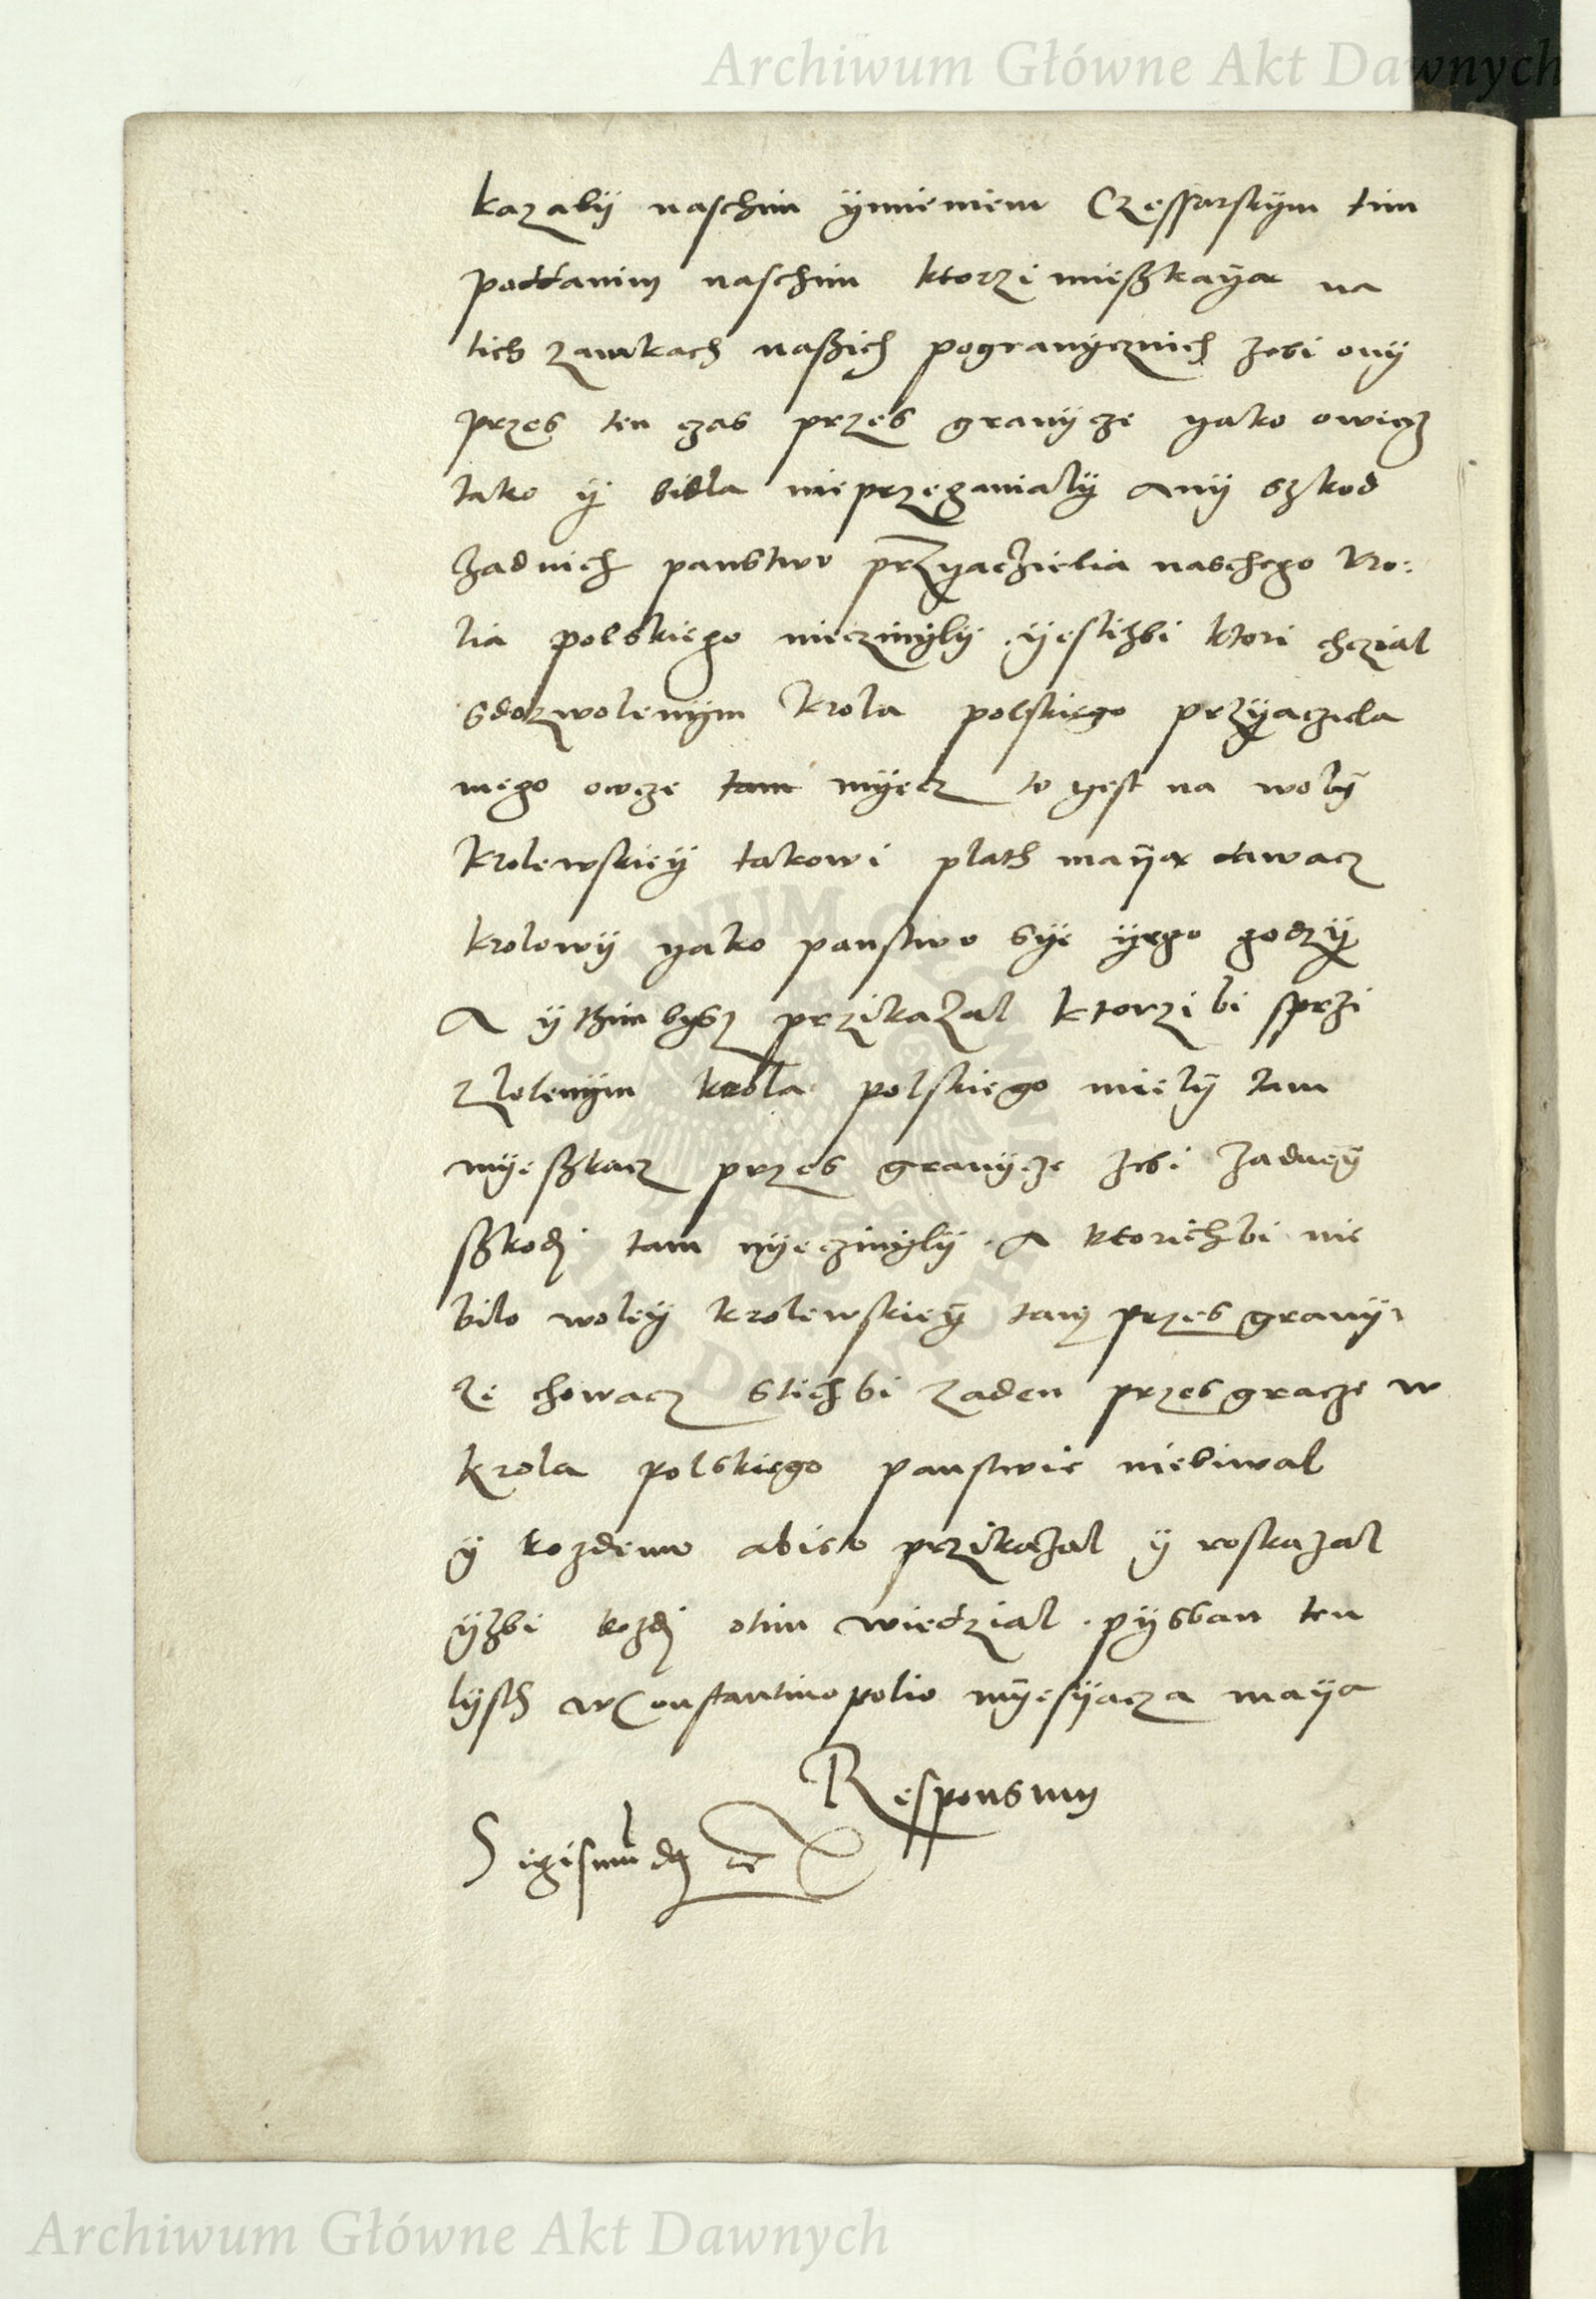 Archiwum Główne Akt Dawnych
kazaly naschim ymieniem Czessarskym tim
poddanim naschim ktorzi mießkaya na
tich zamkach naßich pogranycznich zebi ony
przes ten czas przes granycze yako owiecz
tako y bidla nieprzeganialy any szkod
zadnich panstwv przyaczielia naschego kro:
lia polskiego nieczinyly . yeslizbi ktori chczial
sdozwolenym krola polskiego przyaciela
mego owcze tam myecz to yest na woly
krolewskiey takowi plath maya dawacz
krolowy yako panstwo sye yego godzy
A y tzim bysz przikazal ktorzi bi sprzi
zwolenym krola polskiego miely tam
myeszkacz przes granycze zebi zadney
szkody tam nyeczinyly . A ktorichbi nie
bilo woley krolewskiey tam przes grany
ze chowacz stichbi zaden przes gracze w
krola polskiego panstwie niebiwal
y kozdemu abisto przikazal y roskazal
yzbi kozdy otim wiedzial . pyssan ten
lysth w Constantinopolio myesyacza maya
Responsum
Sigismundus etc
Archiwum Główne Akt Dawnych